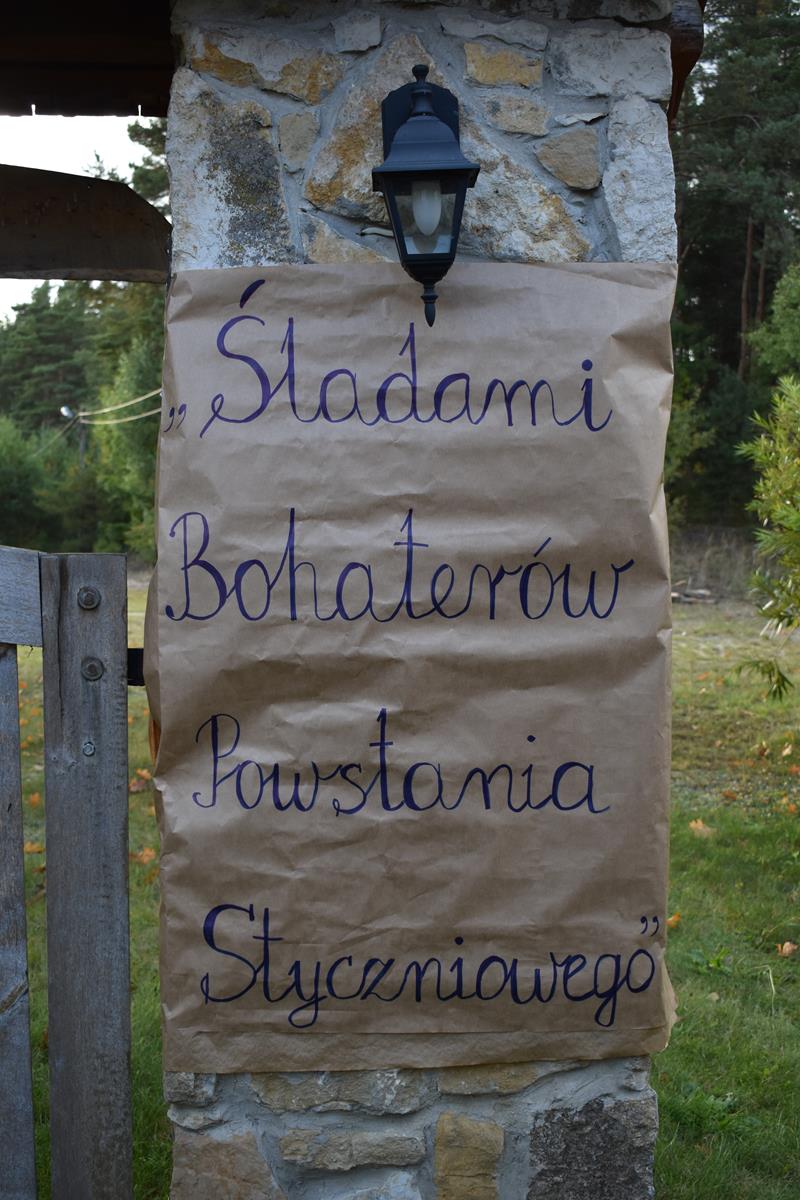 „Śladami
Bohaterów
Powstania
Styczniowego”